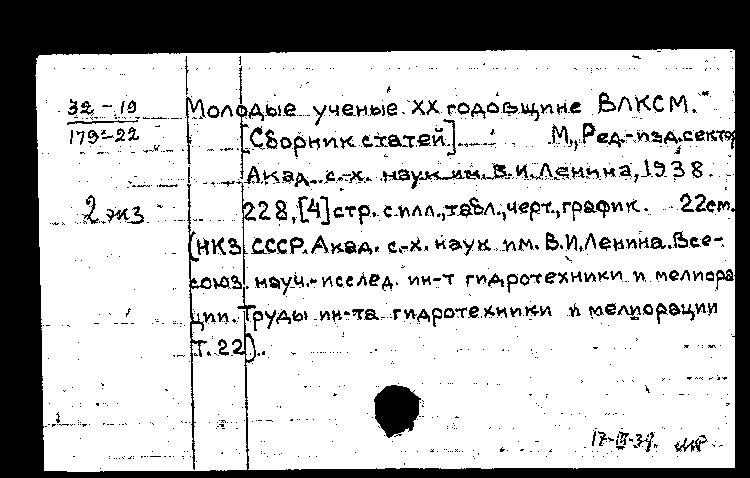 32-19
179-22
2 экз
Молодые ученые XX годовщине ВЛКСМ.
[Сборник статей]. М., Ред.-изд. сектор
Акад. с.-х. наук им. В.И. Ленина, 1938.
228, [4] стр. с илл., табл., черт., график. 22 см.
(НКЗ СССР. Акад. с.-х. наук им. В.И. Ленина. Все-
союз. науч.-исслед. ин-т гидротехники и мелиора
ции. Труды ин-та гидротехники и мелиорации
Т. 22).
17-III-39.